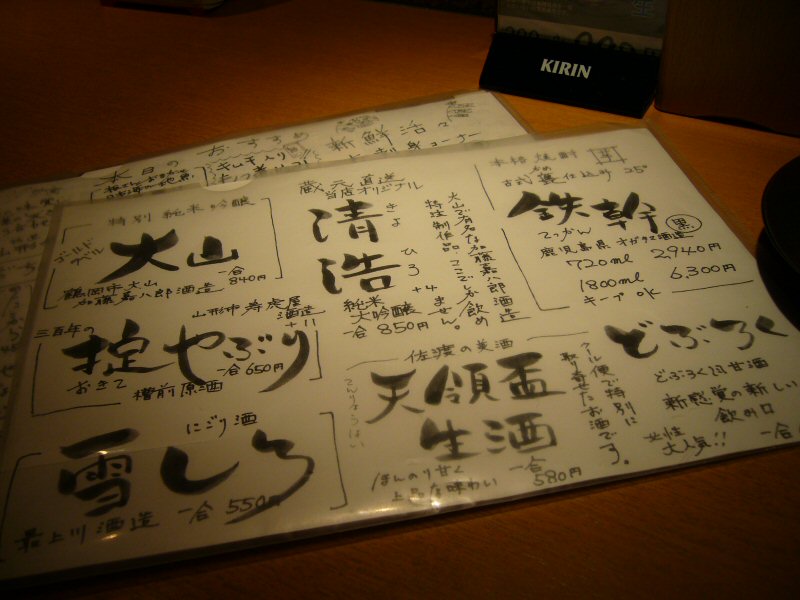 KIRIN
本日の おすすめ
新鮮
特別 純米吟醸
ゴールド
大山
一合
840円
鶴岡市大山
加藤嘉八郎酒造
三百年の
山形市寿虎屋
酒造
+11
掟やぶり
おきて
一合650円
槽前原酒
にごり酒
雪しろ
最上川酒造
一合 550円
蔵元直送
当店オリジナル
清浩
きよ
ひろ
大山で有名な加藤嘉八郎酒造
特注制作品。ここでしか飲め
ません。
純米
大吟醸
+4
一合 850円
佐渡の美酒
天領盃
てんりょうはい
生酒
クール便で特別に
取り寄せたお酒です。
ほんのり甘く
上品な味わい
一合
580円
本格焼酎
芋
古式甕仕込み 25°
かめ
鉄幹
黒
てっかん
鹿児島県 オガタマ酒造
720ml 2,940円
1800ml 6,300円
キープOK
どぶろく
どぶろく風甘酒
新感覚の新しい
飲み口
女性
大人気!!
一合